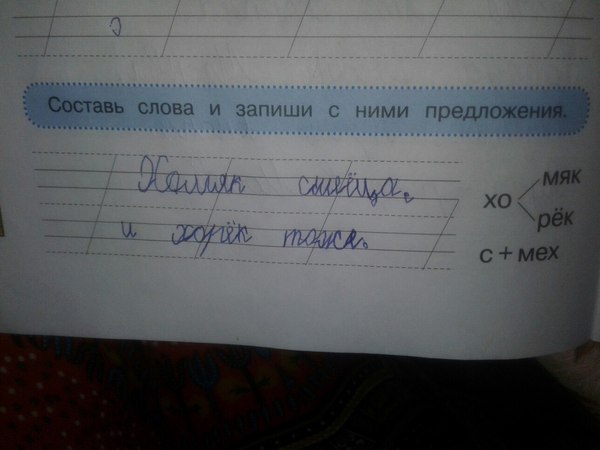 Составь слова и запиши с ними предложения.
Хомяк смеёца.
и хорёк тоже.
хо мяк
рёк
с + мех